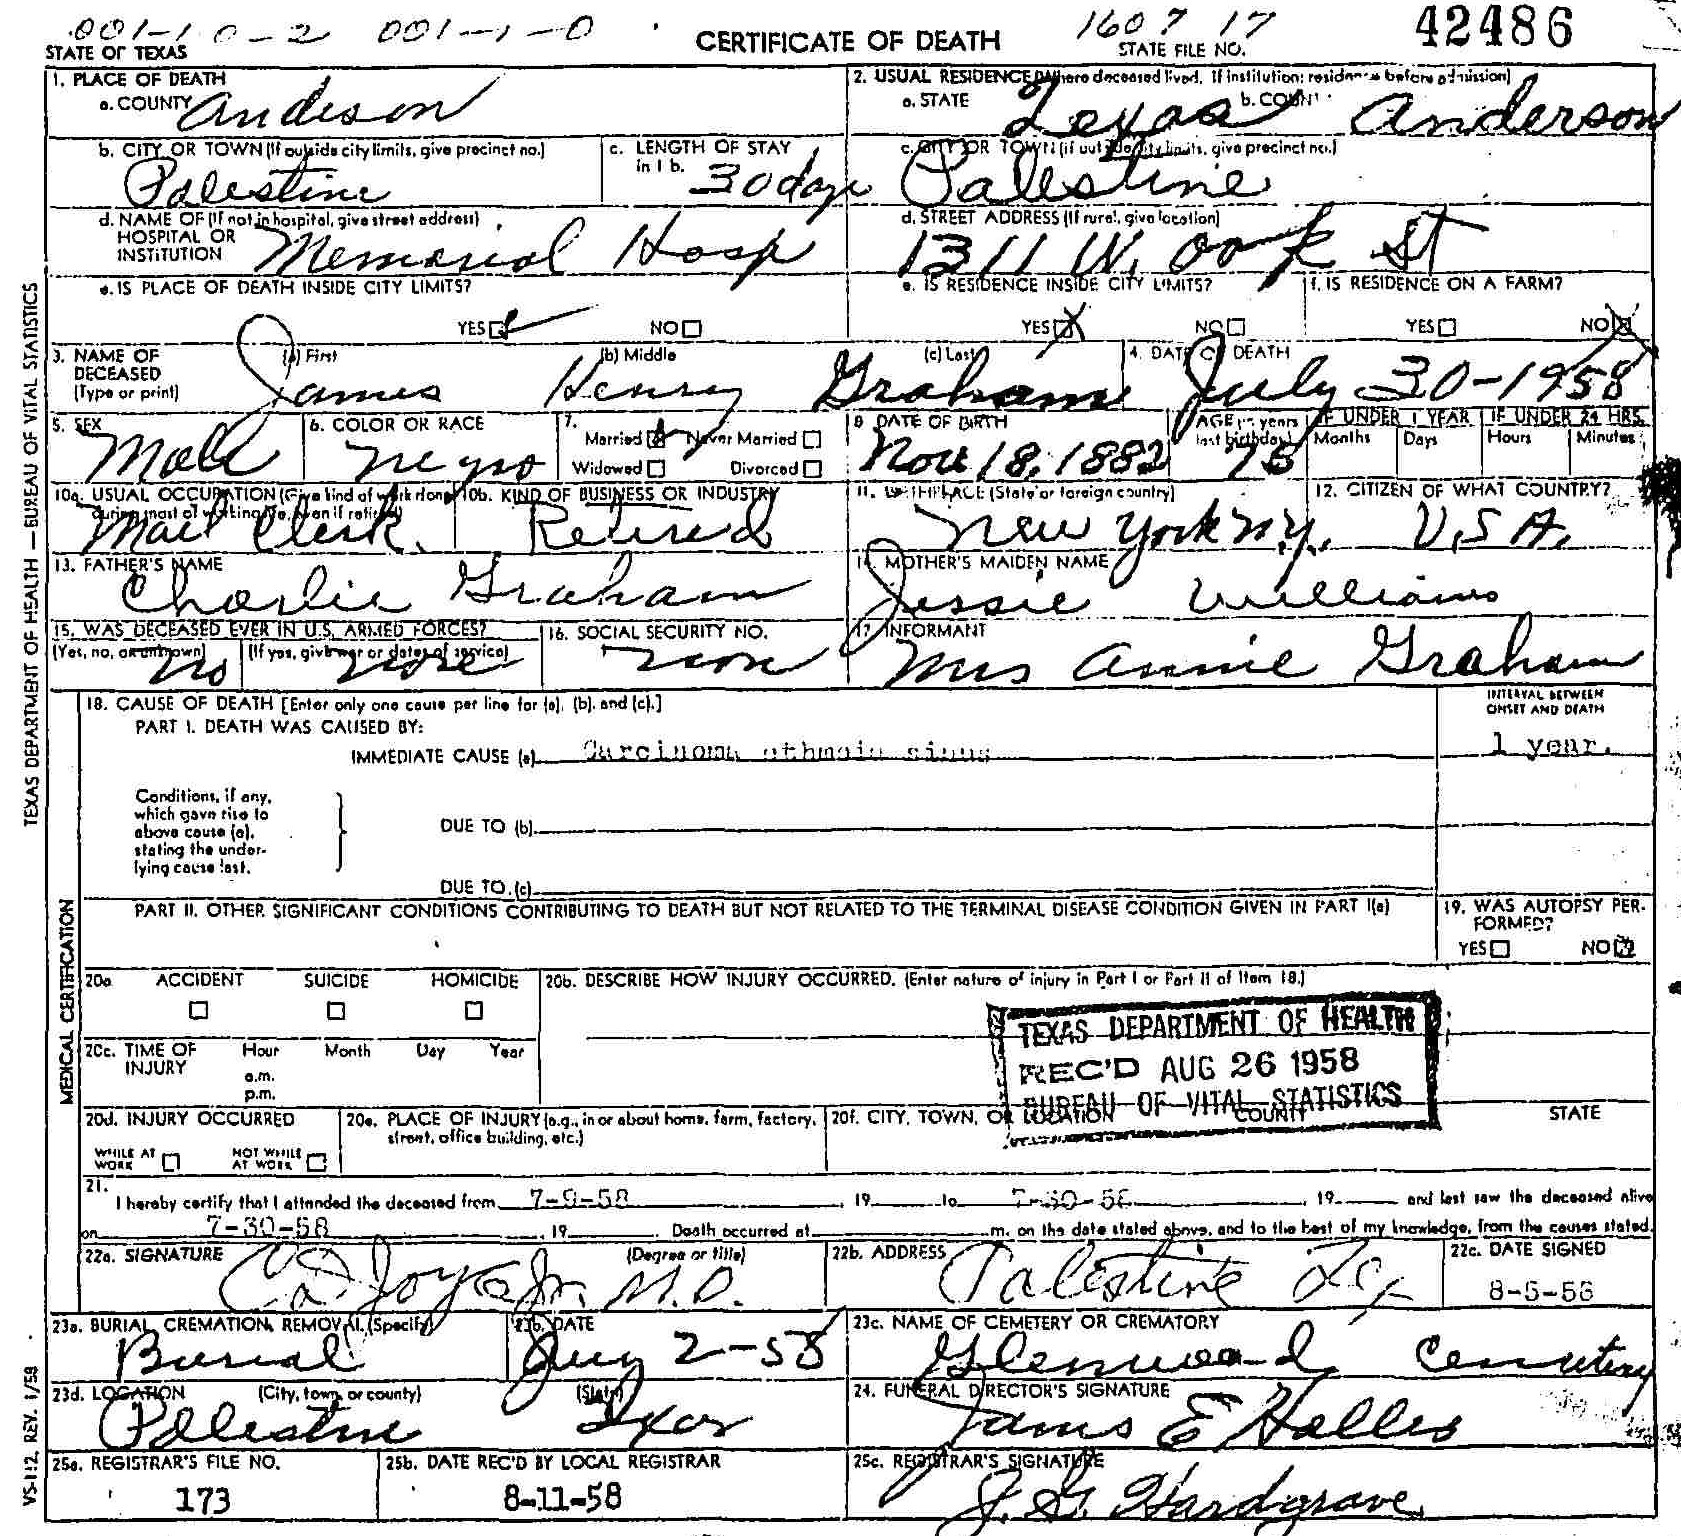 001-1 0-2 001-1-0
1607 17
42486
STATE OF TEXAS
CERTIFICATE OF DEATH
STATE FILE NO.
1. PLACE OF DEATH
a. COUNTY Anderson
2. USUAL RESIDENCE (Where deceased lived. If institution: residence before admission)
a. STATE Texas b. COUNTY Anderson
b. CITY OR TOWN (If outside city limits, give precinct no.) Palestine
c. LENGTH OF STAY in 1 b. 30 days
c. CITY OR TOWN (if outside city limits, give precinct no.) Palestine
d. NAME OF (If not in hospital, give street address) HOSPITAL OR INSTITUTION Memorial Hosp
d. STREET ADDRESS (If rural, give location) 1311 W. Oak St
e. IS PLACE OF DEATH INSIDE CITY LIMITS?
YES NO
e. IS RESIDENCE INSIDE CITY LIMITS?
YES NO
f. IS RESIDENCE ON A FARM?
YES NO
3. NAME OF DECEASED (Type or print)
(a) First James
(b) Middle Henry
(c) Last Graham
4. DATE OF DEATH July 30-1958
5. SEX Male
6. COLOR OR RACE Negro
7. Married Never Married
Widowed Divorced
8 DATE OF BIRTH Nov 18, 1882
AGE (in years last birthday) 75
IF UNDER 1 YEAR Months Days
IF UNDER 24 HRS. Hours Minutes
10a. USUAL OCCUPATION (Give kind of work done during most of working life, even if retired) Mail Clerk
10b. KIND OF BUSINESS OR INDUSTRY Retired
11. BIRTHPLACE (State or foreign country) New York N.Y.
12. CITIZEN OF WHAT COUNTRY? U.S.A.
13. FATHER'S NAME Charlie Graham
14. MOTHER'S MAIDEN NAME Jessie Williams
15. WAS DECEASED EVER IN U.S. ARMED FORCES?
(Yes, no, or unknown) no (If yes, give war or dates of service) none
16. SOCIAL SECURITY NO. non
17. INFORMANT Mrs Annie Graham
18. CAUSE OF DEATH [Enter only one cause per line for (a), (b), and (c).]
INTERVAL BETWEEN ONSET AND DEATH
PART I. DEATH WAS CAUSED BY:
IMMEDIATE CAUSE (a) Carcinoma ethmoid sinus 1 year.
Conditions, if any, which gave rise to above cause (a), stating the under-lying cause last.
DUE TO (b)
DUE TO (c)
PART II. OTHER SIGNIFICANT CONDITIONS CONTRIBUTING TO DEATH BUT NOT RELATED TO THE TERMINAL DISEASE CONDITION GIVEN IN PART I(a)
19. WAS AUTOPSY PER-FORMED?
YES NO
20a ACCIDENT SUICIDE HOMICIDE
20b. DESCRIBE HOW INJURY OCCURRED. (Enter nature of injury in Part I or Part II of Item 18.)
TEXAS DEPARTMENT OF HEALTH
REC'D AUG 26 1958
BUREAU OF VITAL STATISTICS
20c. TIME OF INJURY Hour Month Day Year
a.m.
p.m.
20d. INJURY OCCURRED
WHILE AT WORK NOT WHILE AT WORK
20e. PLACE OF INJURY (e.g., in or about home, farm, factory, street, office building, etc.)
20f. CITY, TOWN, OR LOCATION COUNTY STATE
21. I hereby certify that I attended the deceased from 7-9-58, 19 to 7-30-58, 19 and last saw the deceased alive
on 7-30-58, 19 Death occurred at m. on the date stated above, and to the best of my knowledge, from the causes stated.
22a. SIGNATURE (Degree or title) M.D.
22b. ADDRESS Palestine Tex
22c. DATE SIGNED 8-5-58
23a. BURIAL, CREMATION, REMOVAL (Specify) Burial
23b. DATE Aug 2-58
23c. NAME OF CEMETERY OR CREMATORY Glenwood Cemetery
23d. LOCATION (City, town, or county) Palestine (State) Texas
24. FUNERAL DIRECTOR'S SIGNATURE James E Halles
25a. REGISTRAR'S FILE NO. 173
25b. DATE REC'D BY LOCAL REGISTRAR 8-11-58
25c. REGISTRAR'S SIGNATURE J. G. Hardgrave
TEXAS DEPARTMENT OF HEALTH — BUREAU OF VITAL STATISTICS
MEDICAL CERTIFICATION
VS-112, REV. 1/58